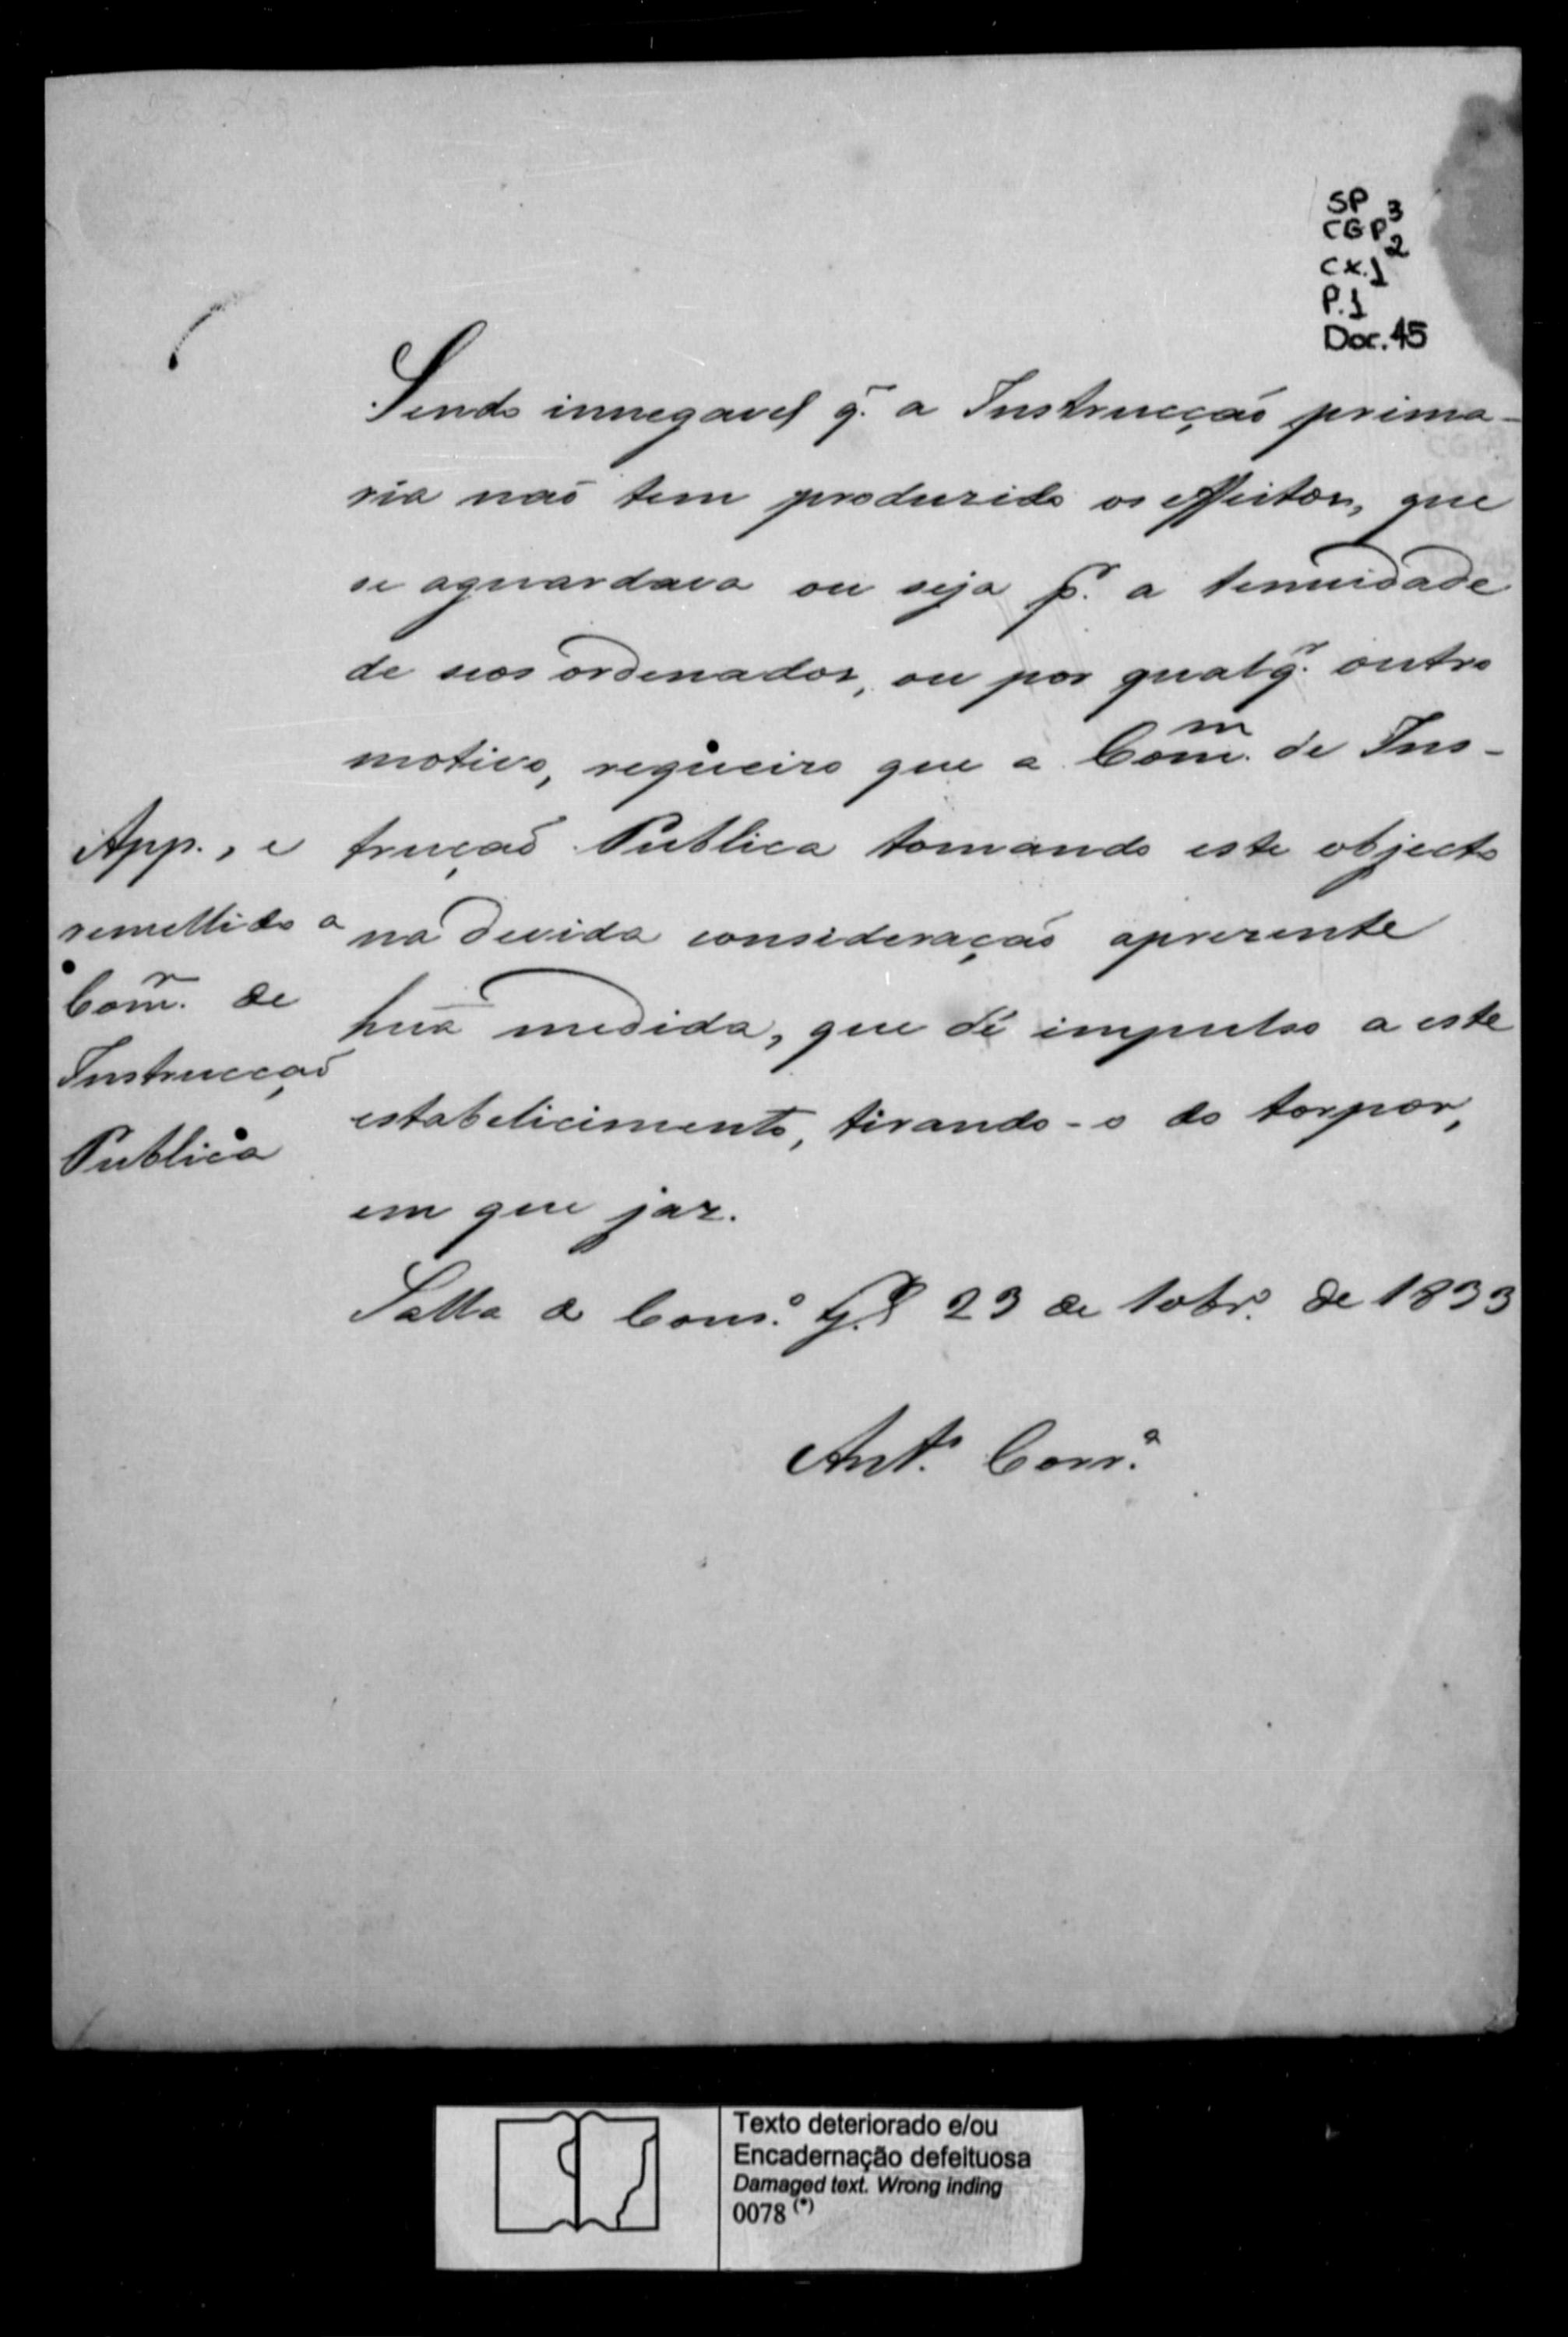 SP
CGP 3
cx. 1 2
P. 1
Doc. 45
Sendo innegavel q̃. a Instrucção prima-
ria naõ tem produzido os effeitos, que
se aguardava ou seja pr. a tenuidade
de seos ordenados, ou por qualqr. outro
motivo, requeiro que a Comm. de Ins-
trucçaõ Publica tomando este objecto
na devida consideraçaõ aprezente
huã medida, que dê impulso a este
estabelicimento, tirando-o do torpor,
em que jaz.
Salla do Conso. Gl. 23 de 10br.o de 1833
Anto. Corra.
App., e
remettido a
Comm. de
Instrucçaõ
Publica
Texto deteriorado e/ou
Encadernação defeituosa
Damaged text. Wrong inding
0078 (*)